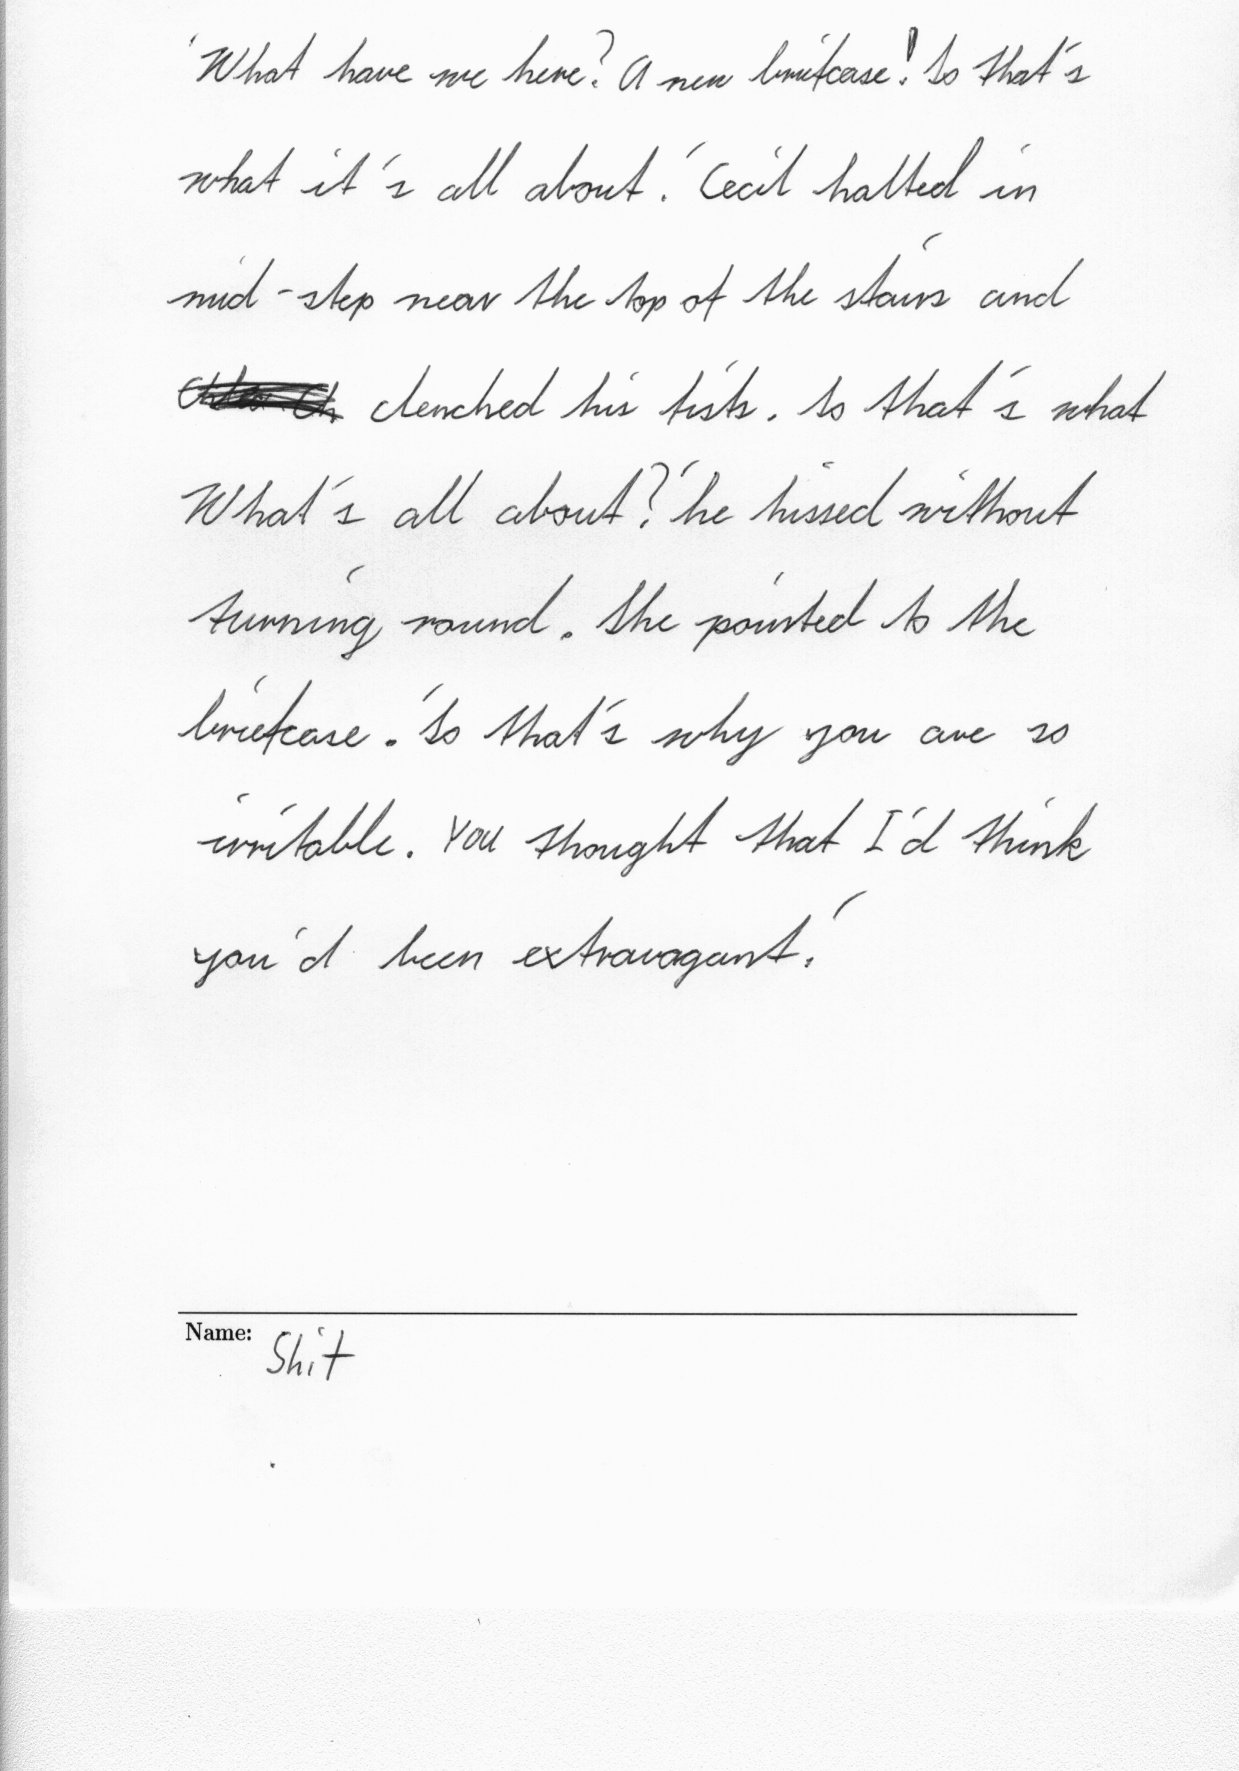 'What have we here? A new briefcase! So that's
what it's all about.' Cecil halted in
mid-step near the top of the stairs and
clenched his fists. So that's what
What's all about?' he hissed without
turning round. She pointed to the
briefcase. 'So that's why you are so
irritable. You thought that I'd think
you'd been extravagant.'
Name: Shit